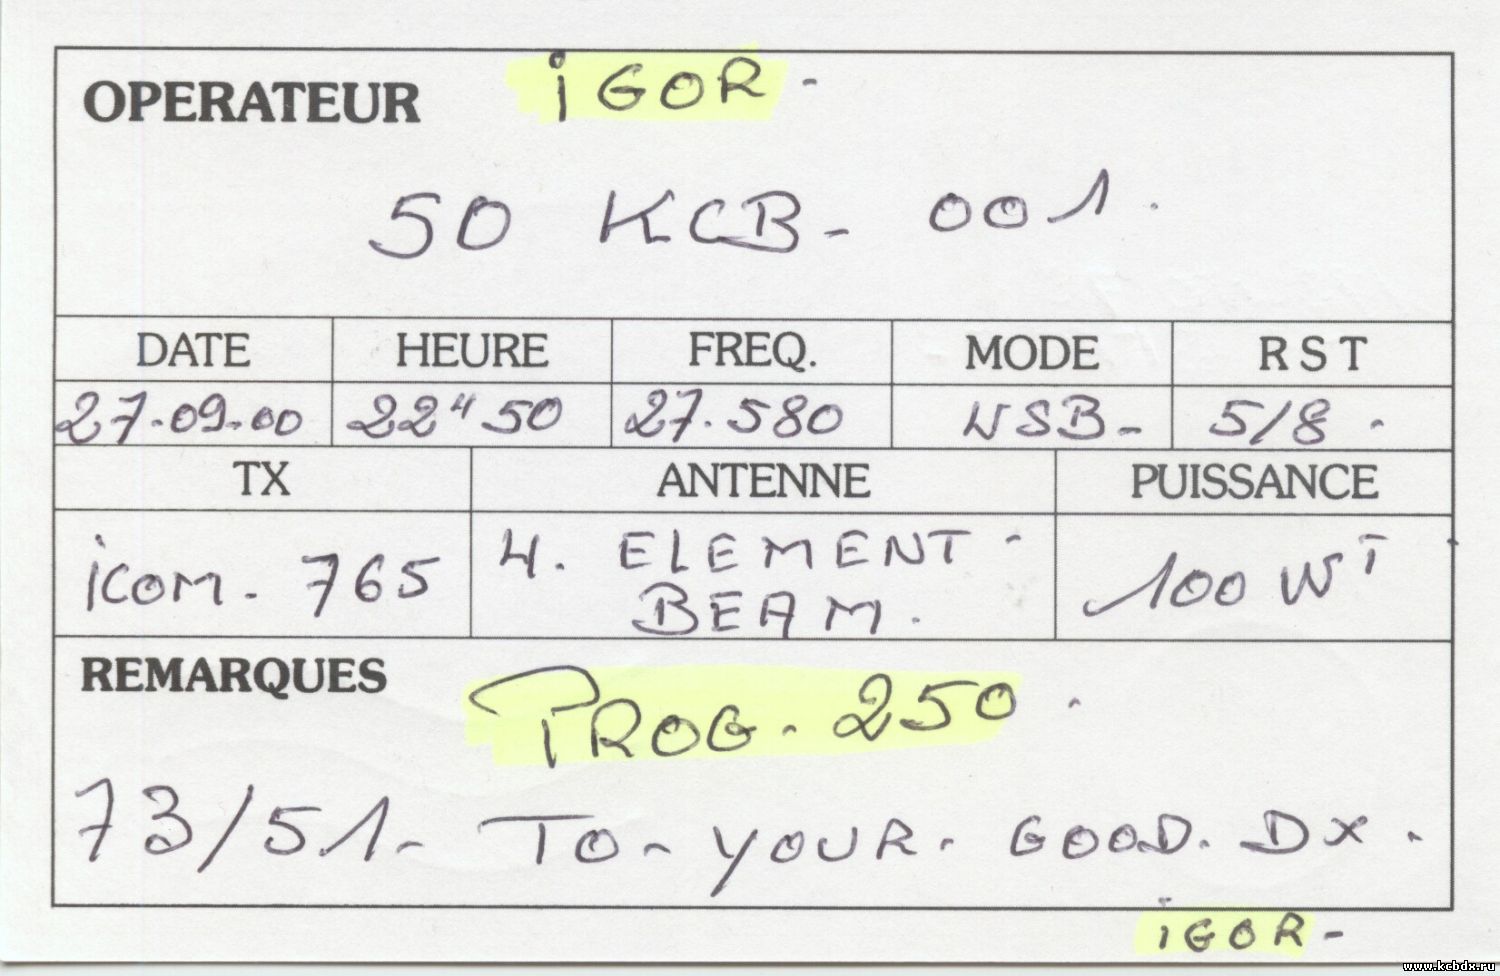 OPERATEUR iGOR -
50 KCB - 001.
DATE HEURE FREQ. MODE RST
27-09-00 22H50 27.580 USB - 5/8 .
TX ANTENNE PUISSANCE
icom. 765 4. ELEMENT - 100 WT
BEAM.
REMARQUES PROG. 250 .
73/51 - TO - YOUR. GOOD. DX.
iGOR -
www.kcbdx.ru